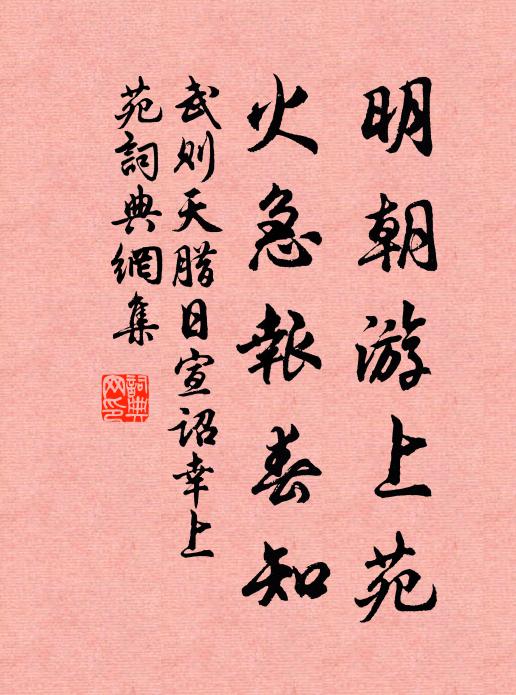 明朝游上苑
火急報春知
武则天腊日宣詔幸上
苑詞典網集
詞典網印